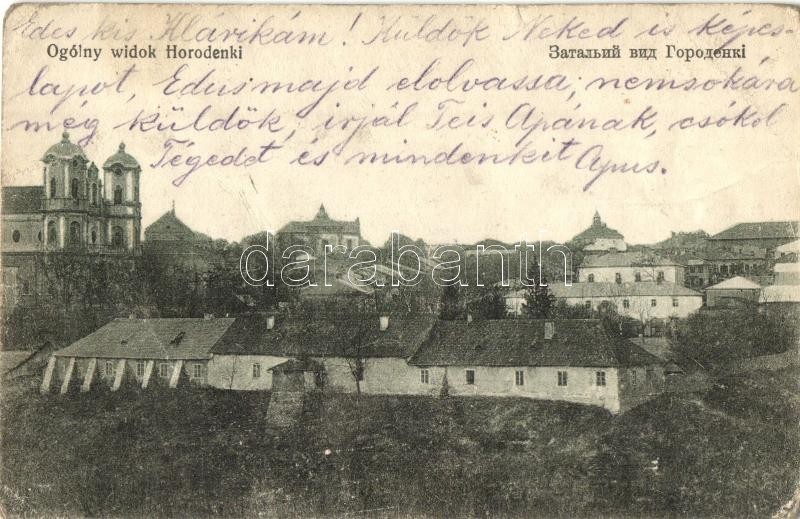 Édes kis Klárikám! Küldök Neked is képes-
Ogólny widok Horodenki
Затальий вид Городенкі
lapot, Edus majd elolvassa, nemsokára
még küldök, irjál Te is Apának, csókol
Tégedet és mindenkit Apus.
darabanth